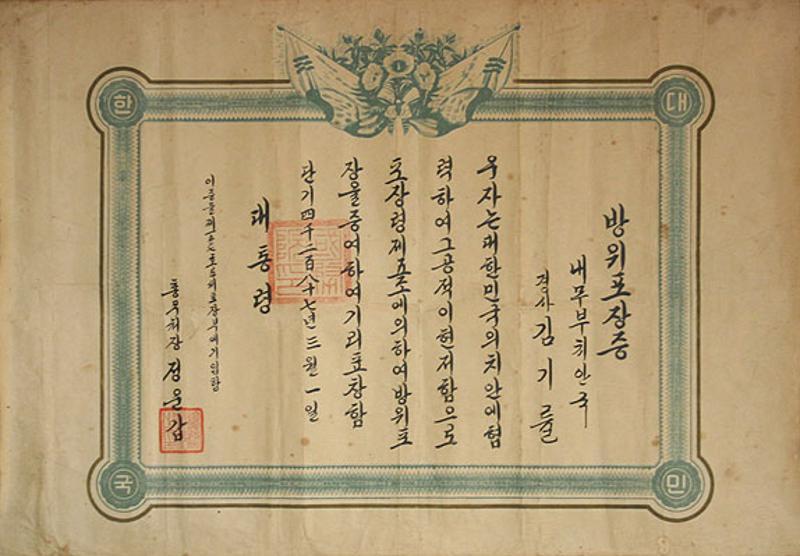 대
한
민
국
방위포장증
내무부치안국
경사 김기
우자는대한민국의치안에협
력하여그공적이현저함으로
포장령제五조에의하여방위포
장을증여하여기리표창함
단기四千二百八十七년三월一일
대통령
총무처장 정운갑